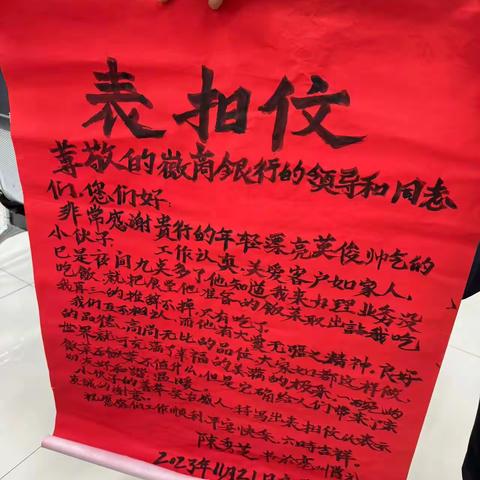 表扬伩
尊敬的徽商银行的领导和同志
们,您们好:
非常感谢贵行的年轻漂亮英俊帅气的
小伙子, 工作认真,关爱客户如家人,
已是夜间九点多了他知道我来办理业务没
吃飯,就把
他准备的飯菜取出話我吃
我再三的推辞不掉,只有吃了
我们互不相识,而他有大爱无疆之精神,良好
的品德,高尚无比的品位大家如都这样做,
世界就可充满了幸福的美满的
飯菜不做
值什么,但是它确给人们带来了
关好和温暖
小伙子的善举
感人,特写出表扬伩以表示
谢意
祝愿您们工作顺利,平安快乐,六时吉祥。
陈秀芝 书於亳州
2023年11月21日